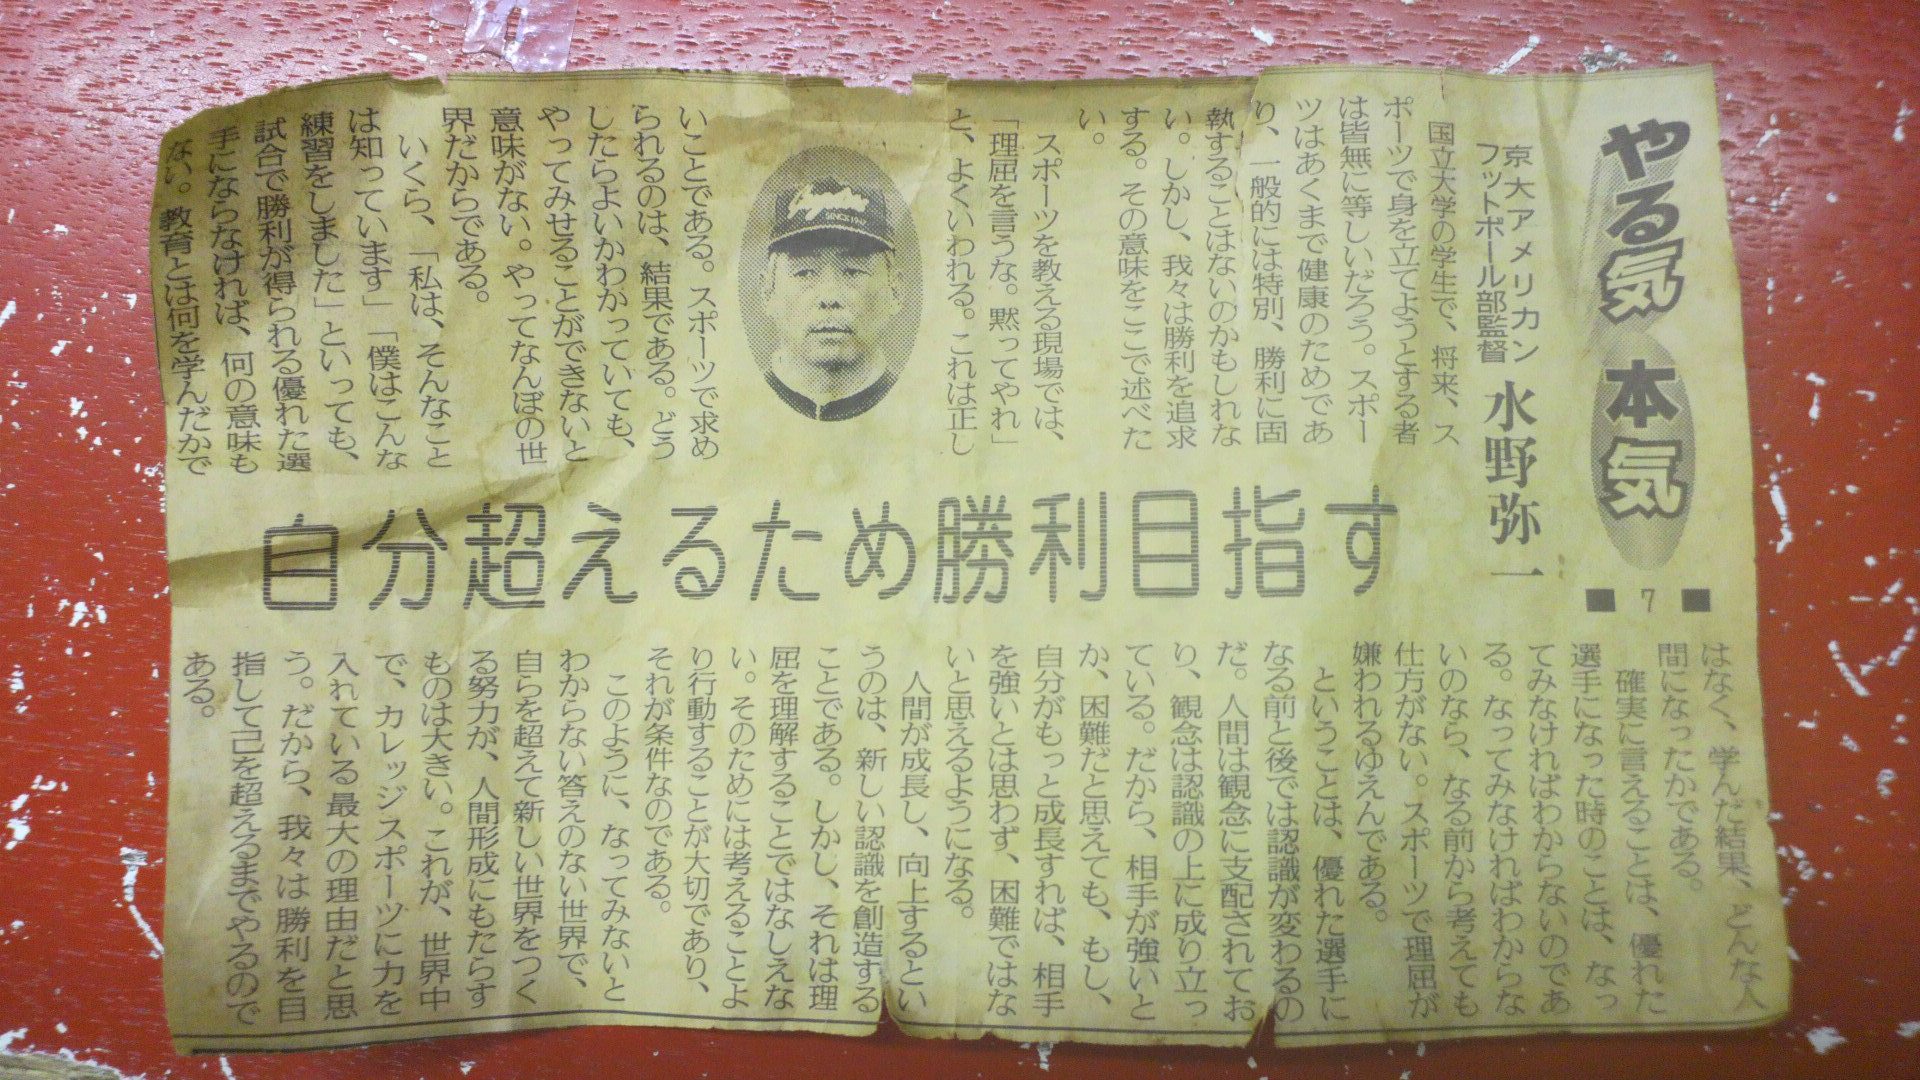 やる気 本気
■ 7 ■
京大アメリカン
フットボール部監督
水野弥一
自分超えるため勝利目指す
SINCE 1947
国立大学の学生で、将来、ス
ポーツで身を立てようとする者
は皆無に等しいだろう。スポー
ツはあくまで健康のためであ
り、一般的には特別、勝利に固
執することはないのかもしれな
い。しかし、我々は勝利を追求
する。その意味をここで述べた
い。
スポーツを教える現場では、
「理屈を言うな。黙ってやれ」
と、よくいわれる。これは正し
いことである。スポーツで求め
られるのは、結果である。どう
したらよいかわかっていても、
やってみせることができないと
意味がない。やってなんぼの世
界だからである。
いくら、「私は、そんなこと
は知っています」「僕はこんな
練習をしました」といっても、
試合で勝利が得られる優れた選
手にならなければ、何の意味も
ない。教育とは何を学んだかで
はなく、学んだ結果、どんな人
間になったかである。
確実に言えることは、優れた
選手になった時のことは、なっ
てみなければわからないのであ
る。なってみなければわからな
いのなら、なる前から考えても
仕方がない。スポーツで理屈が
嫌われるゆえんである。
ということは、優れた選手に
なる前と後では認識が変わるの
だ。人間は観念に支配されてお
り、観念は認識の上に成り立っ
ている。だから、相手が強いと
か、困難だと思えても、もし、
自分がもっと成長すれば、相手
を強いとは思わず、困難ではな
いと思えるようになる。
人間が成長し、向上するとい
うのは、新しい認識を創造する
ことである。しかし、それは理
屈を理解することではなしえな
い。そのためには考えることよ
り行動することが大切であり、
それが条件なのである。
このように、なってみないと
わからない答えのない世界で、
自らを超えて新しい世界をつく
る努力が、人間形成にもたらす
ものは大きい。これが、世界中
で、カレッジスポーツに力を
入れている最大の理由だと思
う。だから、我々は勝利を目
指して己を超えるまでやるので
ある。